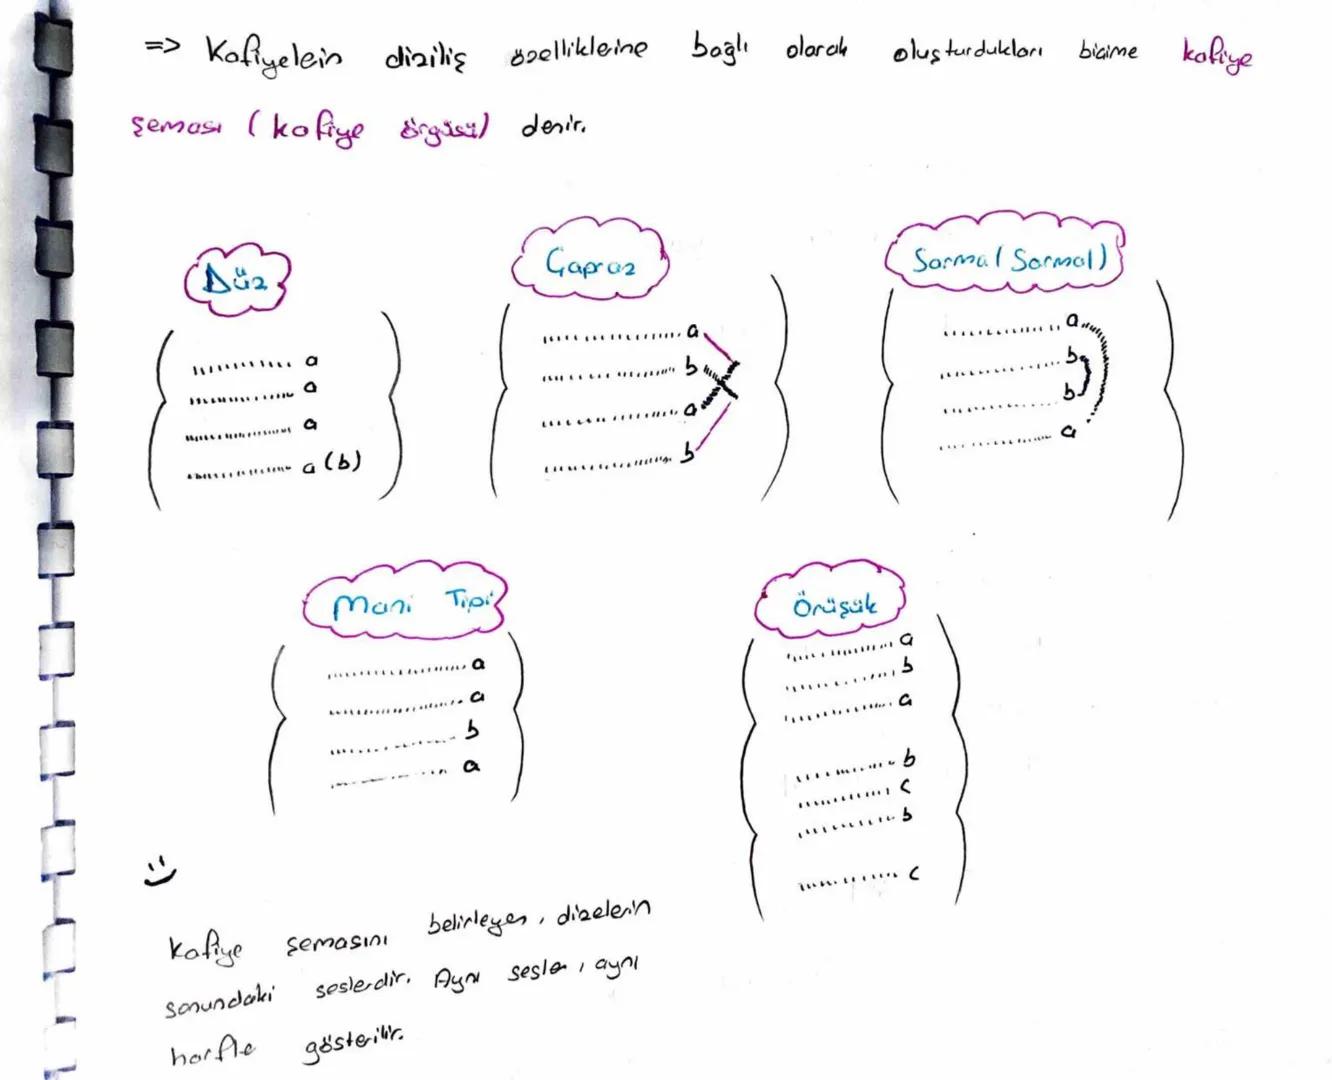 => Kafiyelerin diziliş özelliklerine bağlı olarak oluşturdukları biçime kafiye
şeması (kafiye örgüsü) denir.
Düz
............ a
............ a
............ a
............ a (b)
Çapraz
............ a
............ b
............ a
............ b
Sarma (Sarmal)
............ a
............ b
............ b
............ a
Mani Tipi
............ a
............ a
............ b
............ a
Örüşük
............ a
............ b
............ a
............ b
............ c
............ b
............ c
Kafiye şemasını belirleyen, dizelerin
sonundaki seslerdir. Aynı sesler, aynı
harfle gösterilir.